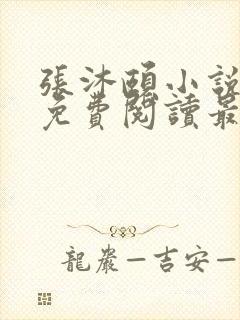 張沐頤小說
免費閱讀最
龍巖—吉安—